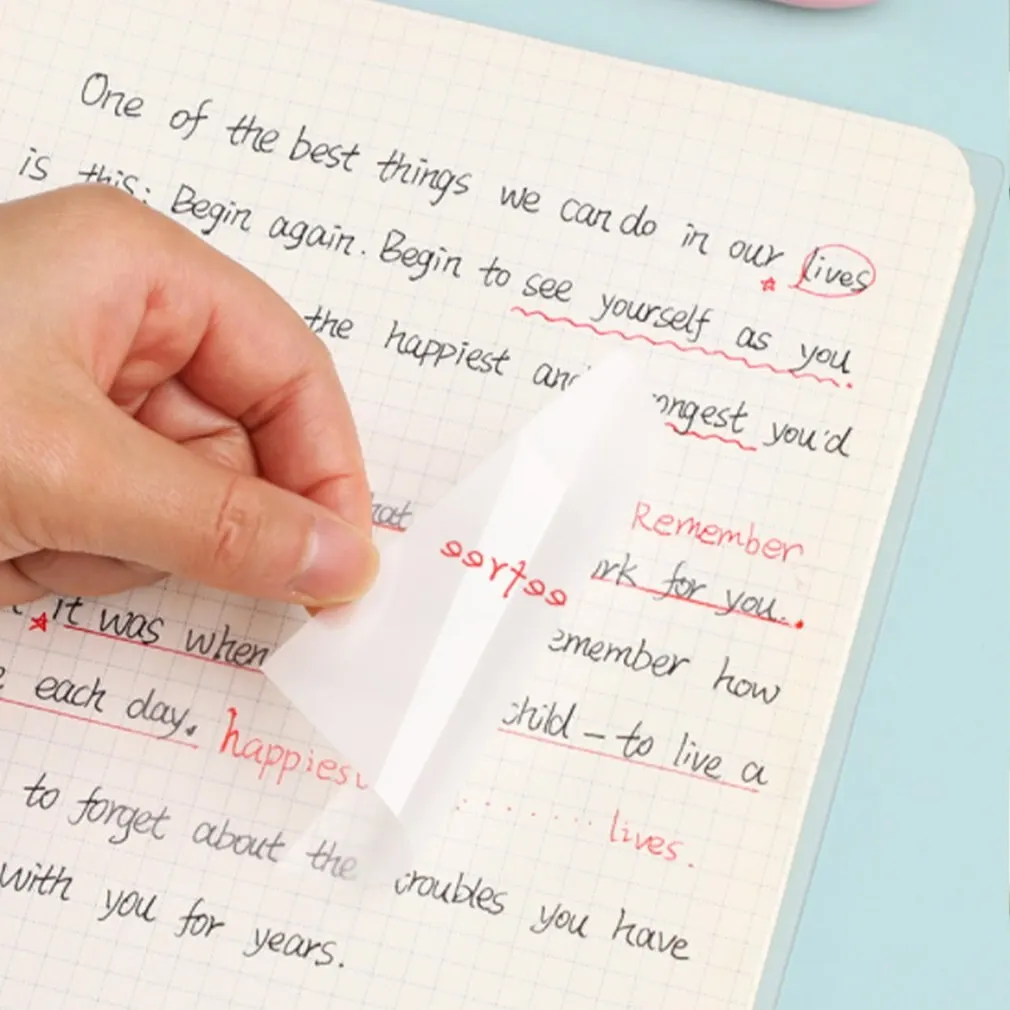 One of the best things we can do in our lives
is this: Begin again. Begin to see yourself as you
the happiest and ongest you'd
hat
Remember
rk for you.
it was when emember how
each day. child – to live a
happies
lives.
to forget about the troubles you have
with you for years.